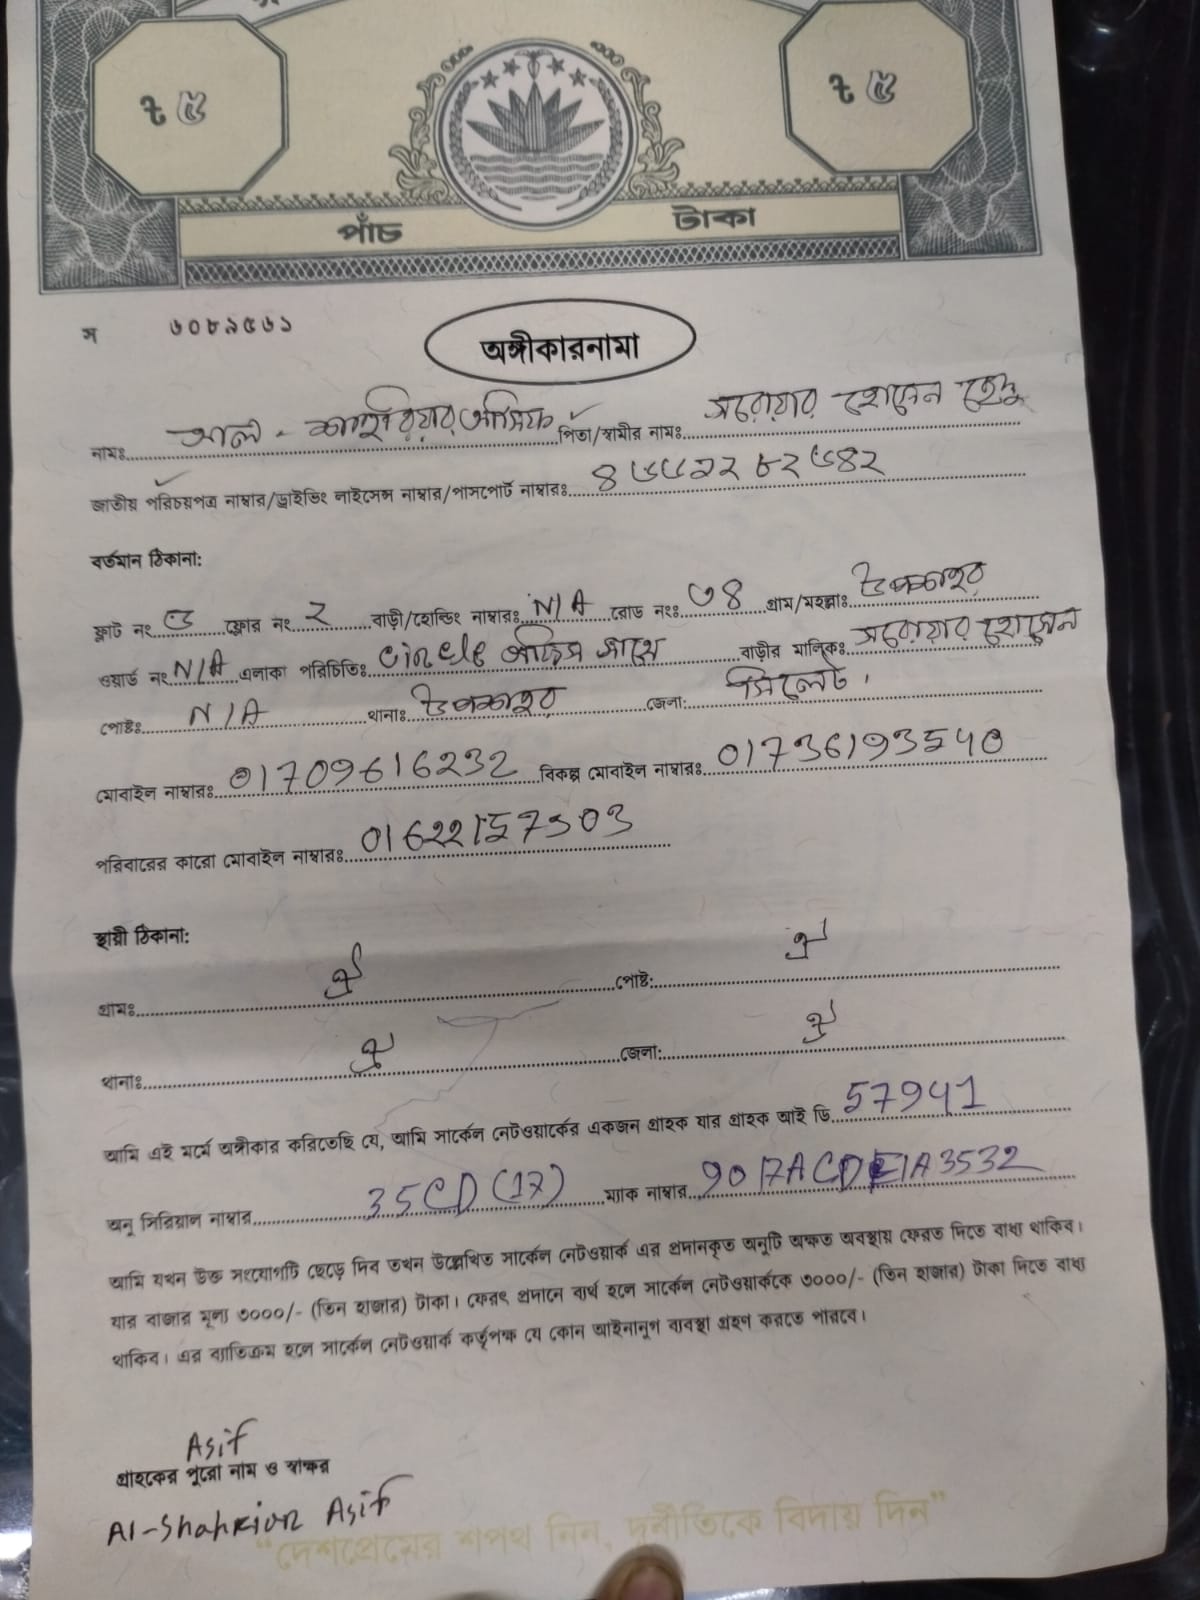 ৳ ৫ ৳ ৫
পাঁচ টাকা
স ৬০৮৯৫৬১
অঙ্গীকারনামা
নামঃ আল - শাহরিয়ার আসিফ পিতা/স্বামীর নামঃ সরোয়ার হোসেন
জাতীয় পরিচয়পত্র নাম্বার/ড্রাইভিং লাইসেন্স নাম্বার/পাসপোর্ট নাম্বারঃ
বর্তমান ঠিকানা:
ফ্লাট নং ফ্লোর নং ২ বাড়ী/হোল্ডিং নাম্বারঃ N/A রোড নংঃ ৩৪ গ্রাম/মহল্লাঃ
ওয়ার্ড নং N/A এলাকা পরিচিতিঃ অফিস বাড়ীর মালিকঃ সরোয়ার হোসেন
পোষ্টঃ N/A থানাঃ জেলা: সিলেট।
মোবাইল নাম্বারঃ 01709616232 বিকল্প মোবাইল নাম্বারঃ 01736193540
পরিবারের কারো মোবাইল নাম্বারঃ 01622157303
স্থায়ী ঠিকানা:
গ্রামঃ ঐ পোষ্ট: ঐ
থানাঃ ঐ জেলা: ঐ
আমি এই মর্মে অঙ্গীকার করিতেছি যে, আমি সার্কেল নেটওয়ার্কের একজন গ্রাহক যার গ্রাহক আই ডি 57941
অনু সিরিয়াল নাম্বার 35CD (17) ম্যাক নাম্বার
আমি যখন উক্ত সংযোগটি ছেড়ে দিব তখন উল্লেখিত সার্কেল নেটওয়ার্ক এর প্রদানকৃত অনুটি অক্ষত অবস্থায় ফেরত দিতে বাধ্য থাকিব।
যার বাজার মূল্য ৩০০০/- (তিন হাজার) টাকা। ফেরৎ প্রদানে ব্যর্থ হলে সার্কেল নেটওয়ার্ককে ৩০০০/- (তিন হাজার) টাকা দিতে বাধ্য
থাকিব। এর ব্যতিক্রম হলে সার্কেল নেটওয়ার্ক কর্তৃপক্ষ যে কোন আইনানুগ ব্যবস্থা গ্রহণ করতে পারবে।
Asif
গ্রাহকের পুরো নাম ও স্বাক্ষর
Al-Shahriar Asif
"দেশপ্রেমের শপথ নিন, দুর্নীতিকে বিদায় দিন"